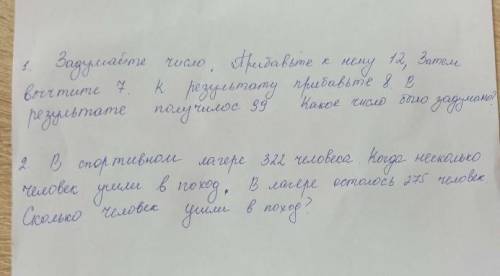 1. Задумайте число. Прибавьте к нему 12, Затем
вычтите 7. К результату прибавьте 8. В
результате получилос 99 Какое число было задумано
2. В спортивном лагере 322 человеса. Когда несколько
человек ушли в поход. В лагере осталось 275 человек.
Сколько человек ушли в поход?